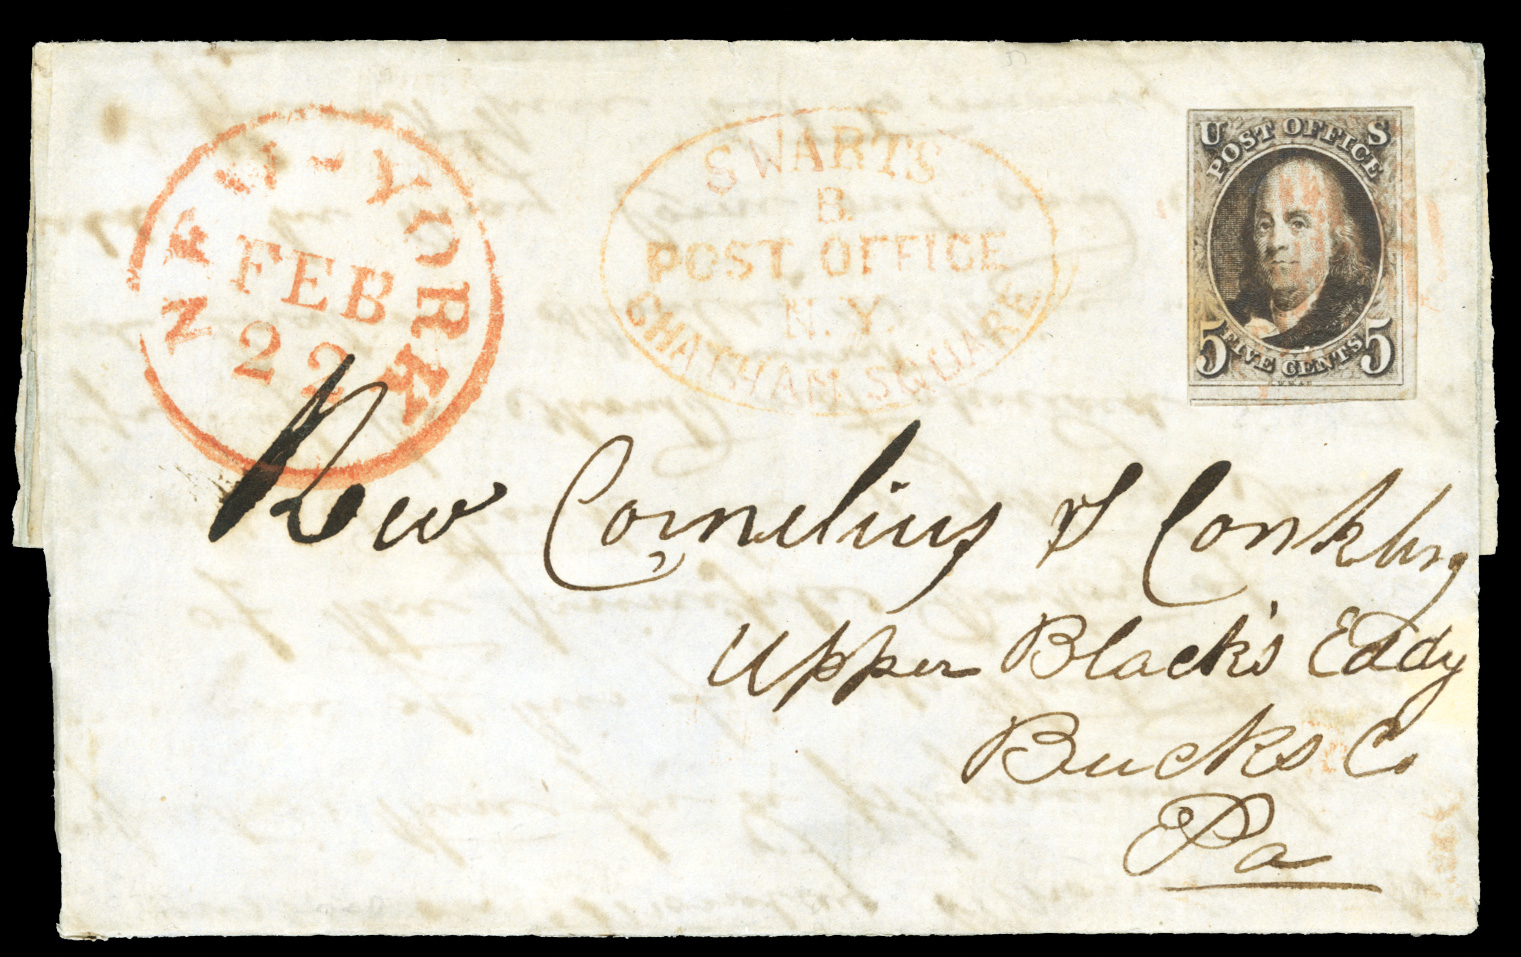 NEW-YORK
FEB
22
SWARTS
B.
POST OFFICE
N.Y.
CHATHAM SQUARE
U S
POST OFFICE
5 5
FIVE CENTS
Rev Cornelius S Conkling
Upper Black's Eddy
Bucks Co
Pa